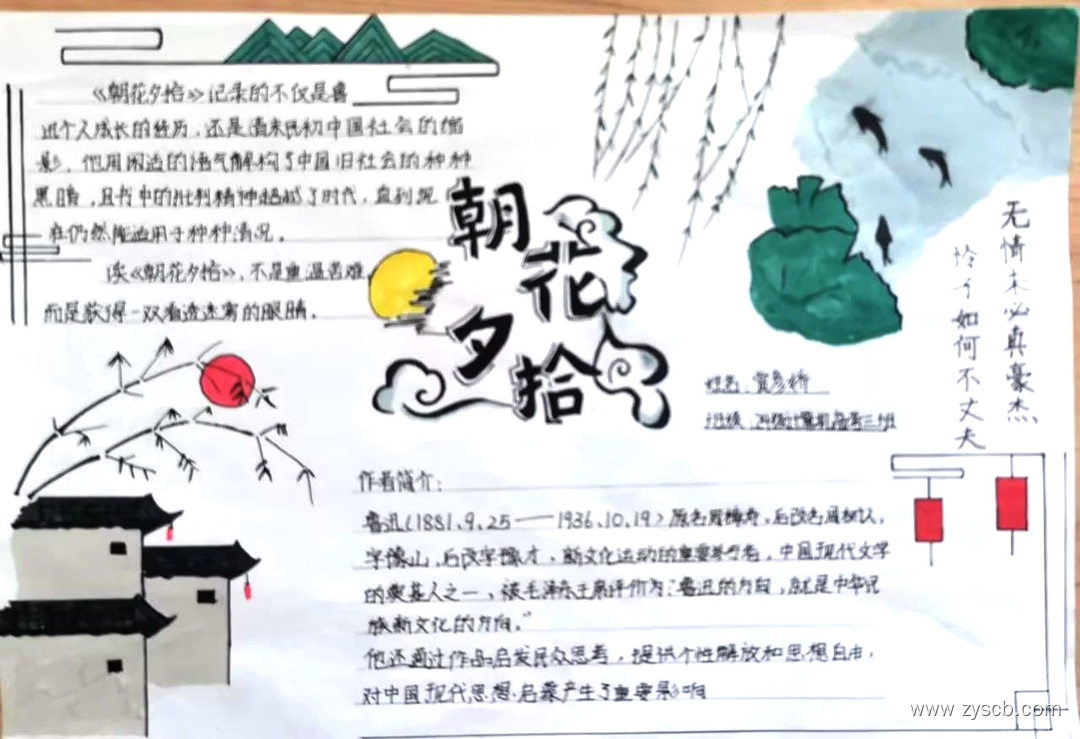 《朝花夕拾》记录的不仅是鲁
迅个人成长的经历,还是清末民初中国社会的缩
影。他用闲适的语气解构了中国旧社会的种种
黑暗,且书中的批判精神超越了时代,直到现
在仍然能适用于种种情况。
读《朝花夕拾》,不是重温苦难,
而是获得一双看透迷雾的眼睛。
朝花夕拾
无情未必真豪杰
怜子如何不丈夫
姓名:
班级:24级计算机高考三班
作者简介:
鲁迅(1881、9、25——1936、10、19)原名周樟寿,后改名周树人,
字豫山,后改字豫才,新文化运动的重要参与者,中国现代文学
的奠基人之一,被毛泽东主席评价为:鲁迅的方向,就是中华民
族新文化的方向。”
他还通过作品启发民众思考,提供个性解放和思想自由,
对中国现代思想启蒙产生了重要影响
www.zyscb.com